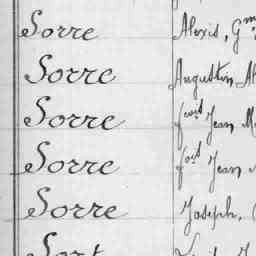 Sorre Alexis, Gm
Sorre Augustin Al
Sorre fois Jean M
Sorre fois Jean
Sorre Joseph, (
Sort Louis J